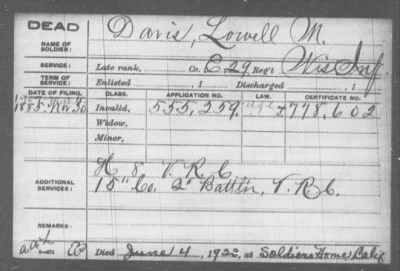 DEAD
NAME OF SOLDIER: Davis, Lowell M.
SERVICE: Late rank, Co. E, 29 Reg't Wis Inf.
TERM OF SERVICE: Enlisted , 1 Discharged , 1
DATE OF FILING. CLASS. APPLICATION NO. LAW. CERTIFICATE NO.
1885, Nov. 30 Invalid, 555,259 778,602
Widow,
Minor,
ADDITIONAL SERVICES: H 8 V.R.C.
15" Co. 2" Battln, V.R.C.
REMARKS:
Died June 4, 1922, at Soldiers Home Calif